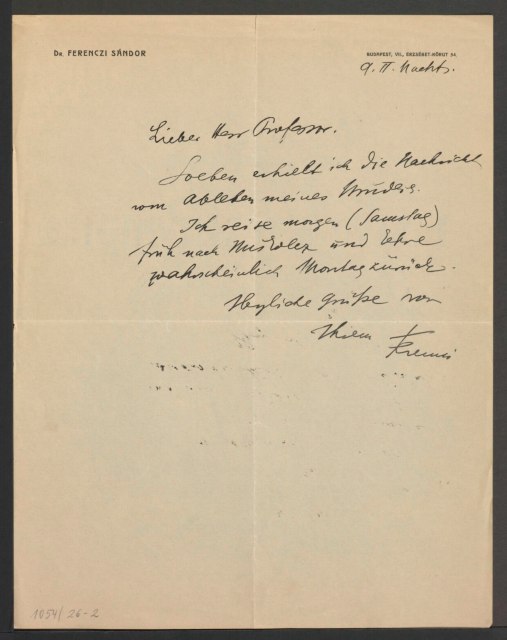 Dr. FERENCZI SÁNDOR
BUDAPEST, VII., ERZSÉBET-KÖRUT 54.
9. II. Nachts.
Lieber Herr Professor.
Soeben erhielt ich die Nachricht
vom Ableben meines Bruders.
Ich reise morgen (Samstag)
früh nach und kehre
wahrscheinlich Montag zurück.
Herzliche Grüße von
Ihrem
Ferenczi
1054/26-2